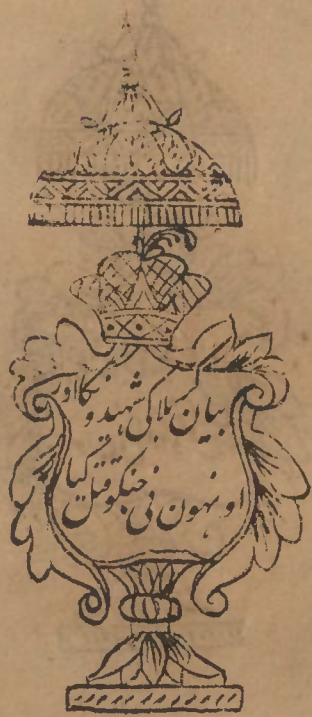 بیان کربلا کی شہیدونکا اور
اونہون نی جنکو قتل کیا